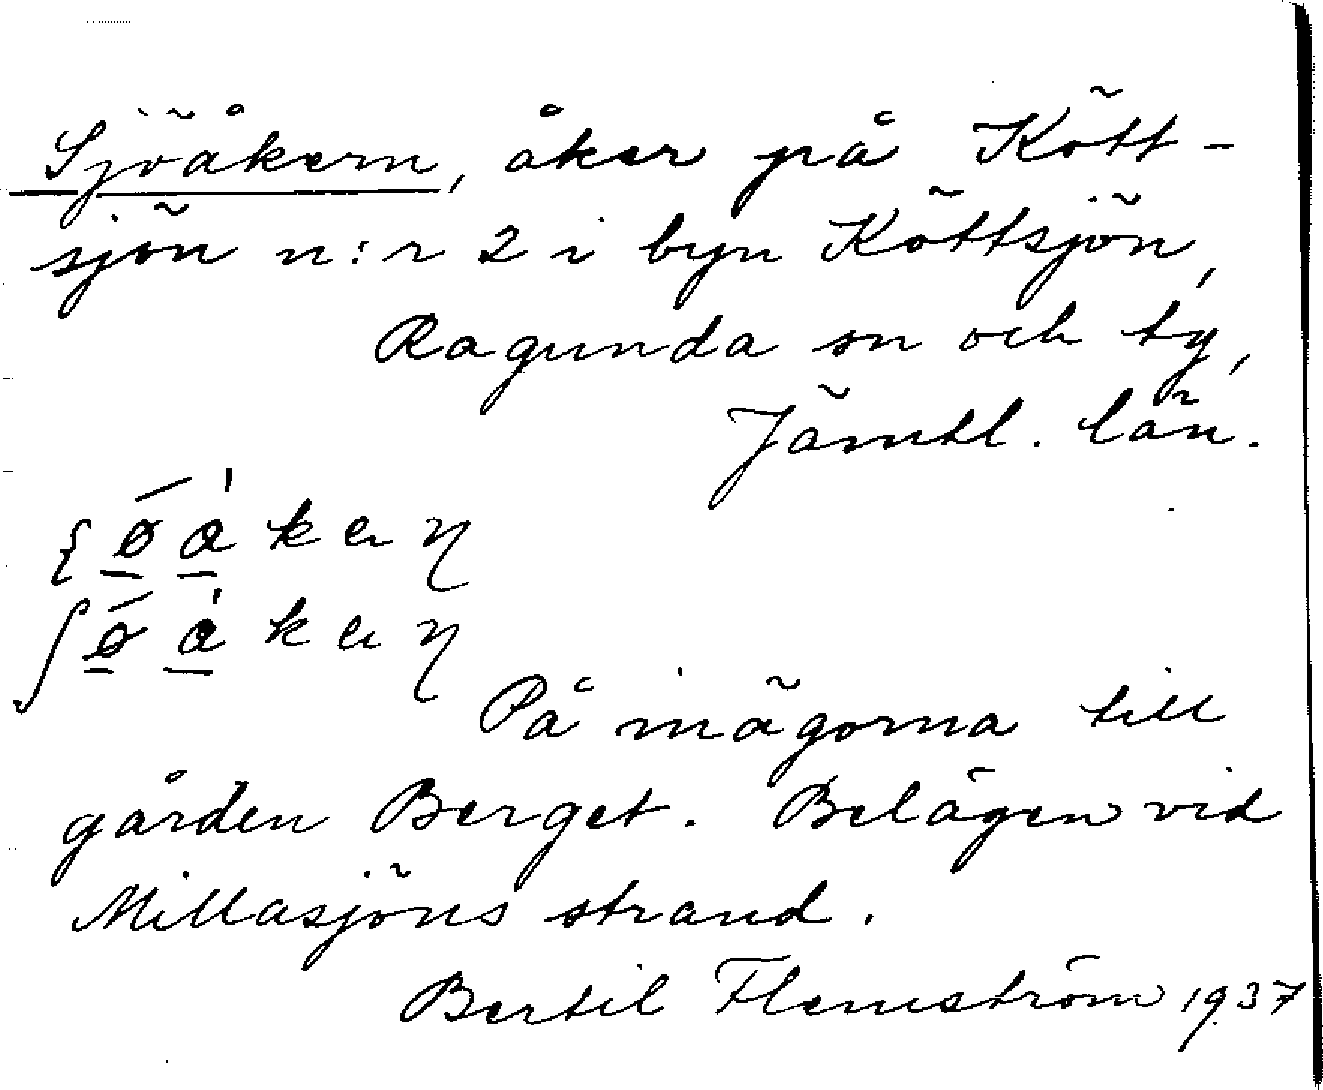 Sjöåkern, åker på Kött-
sjön n:r 2 i byn Köttsjön,
Ragunda sn och tg,
Jämtl. län.
På inägorna till
gården Berget. Belägen vid
Millasjöns strand.
Bertil Flemström 1937